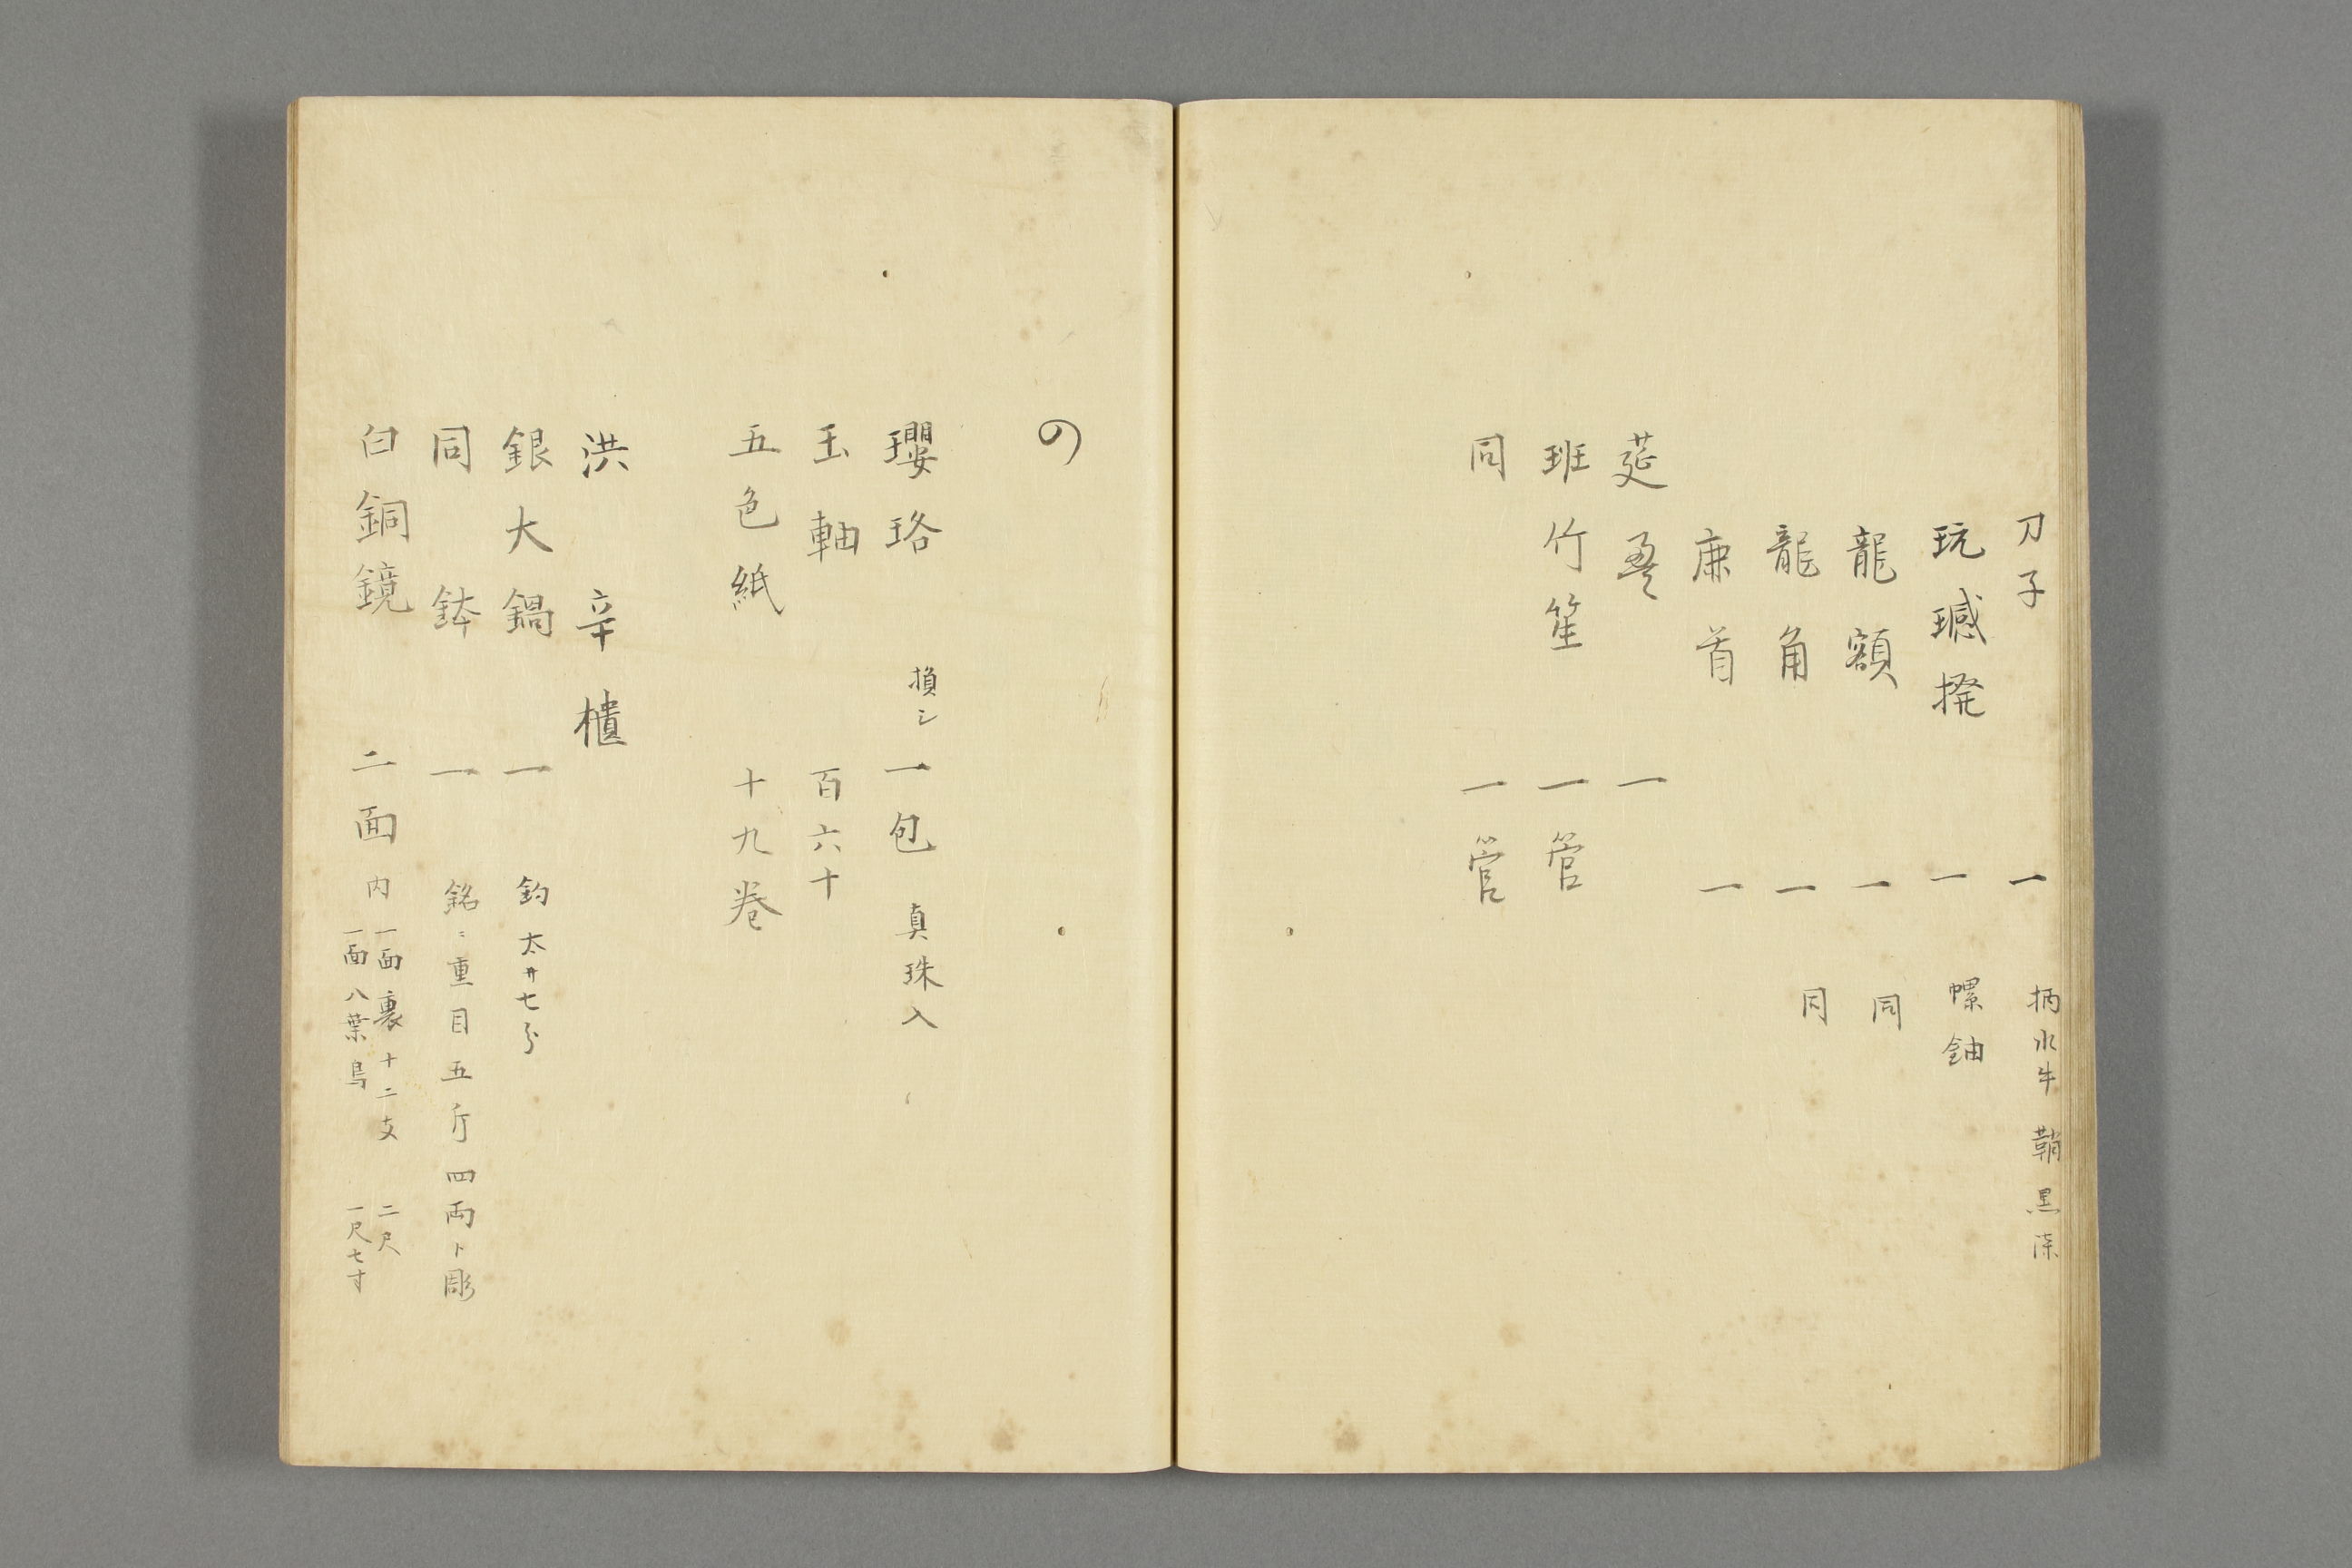 刀子 一 柄水牛 鞘黒漆
玩瑊撥 一 螺鈿
龍額 一 同
龍角 一 同
廉首 一
莚 一
班竹笙 一管
同 一管
の
瓔珞 損シ 一包 真珠入
玉軸 百六十
五色紙 十九巻
洪 辛櫃
銀大鍋 一 釣太サ七分
同鉢 一 銘ニ重目五斤四両ト彫
白銅鏡 二面 内 一面裏十二支 二尺
一面八葉鳥 一尺七寸